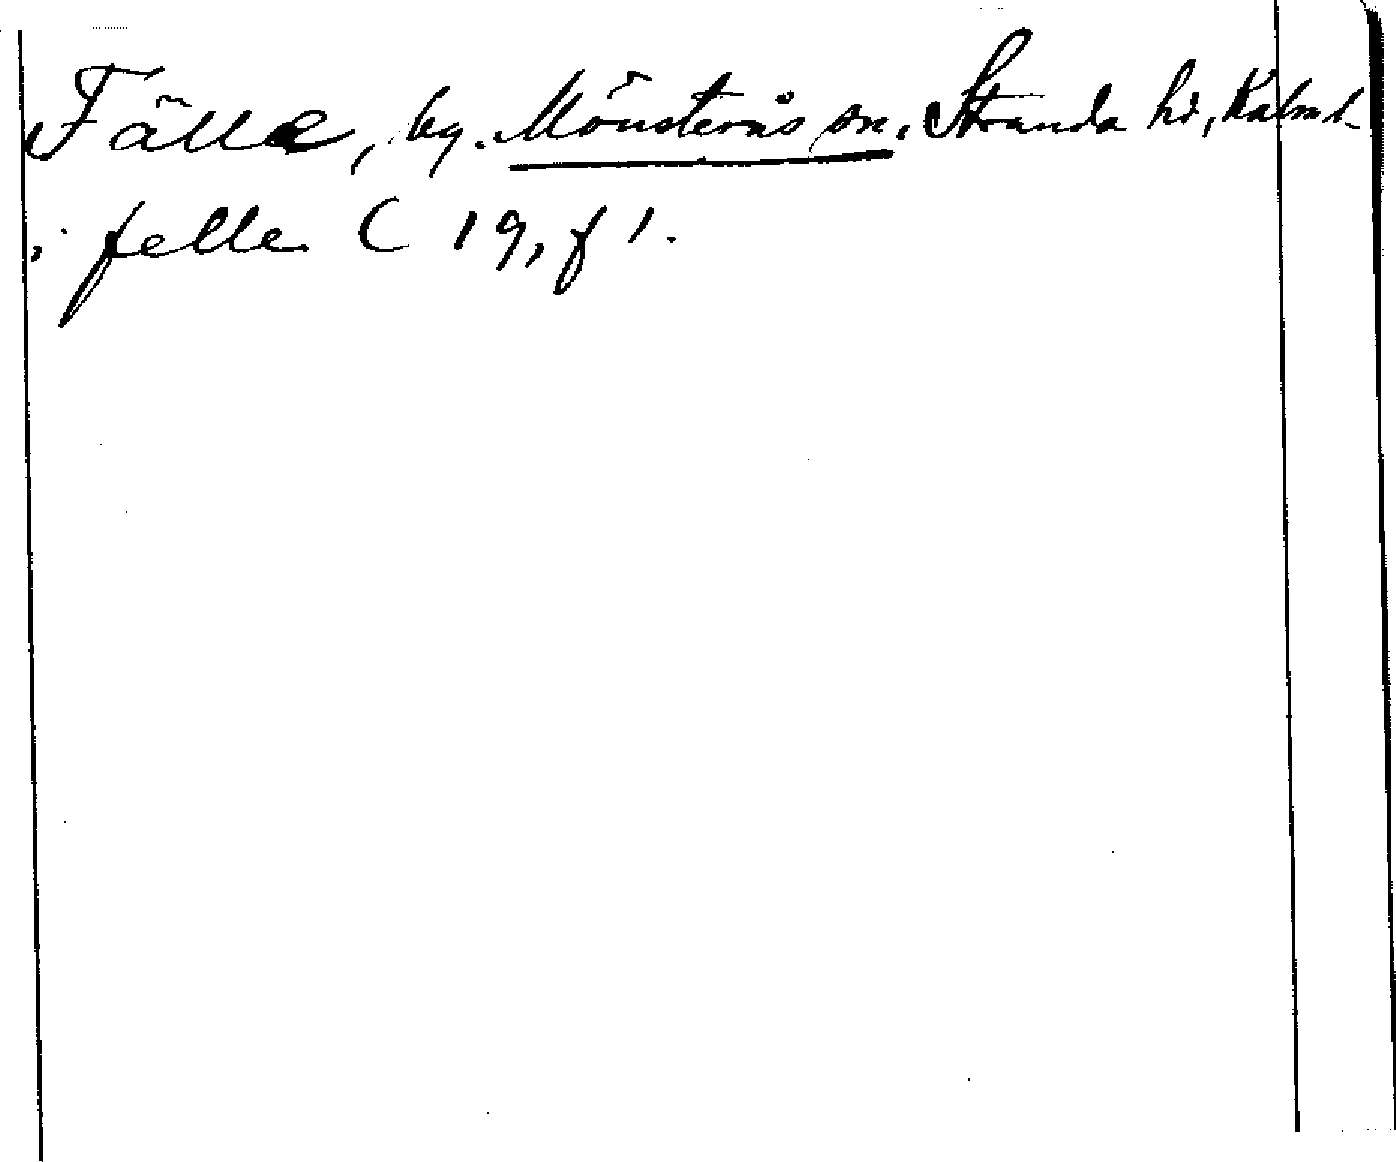 Fälle, by. Mönsterås sn. Stranda hd, Kalm l.
i felle C 19, f 1.